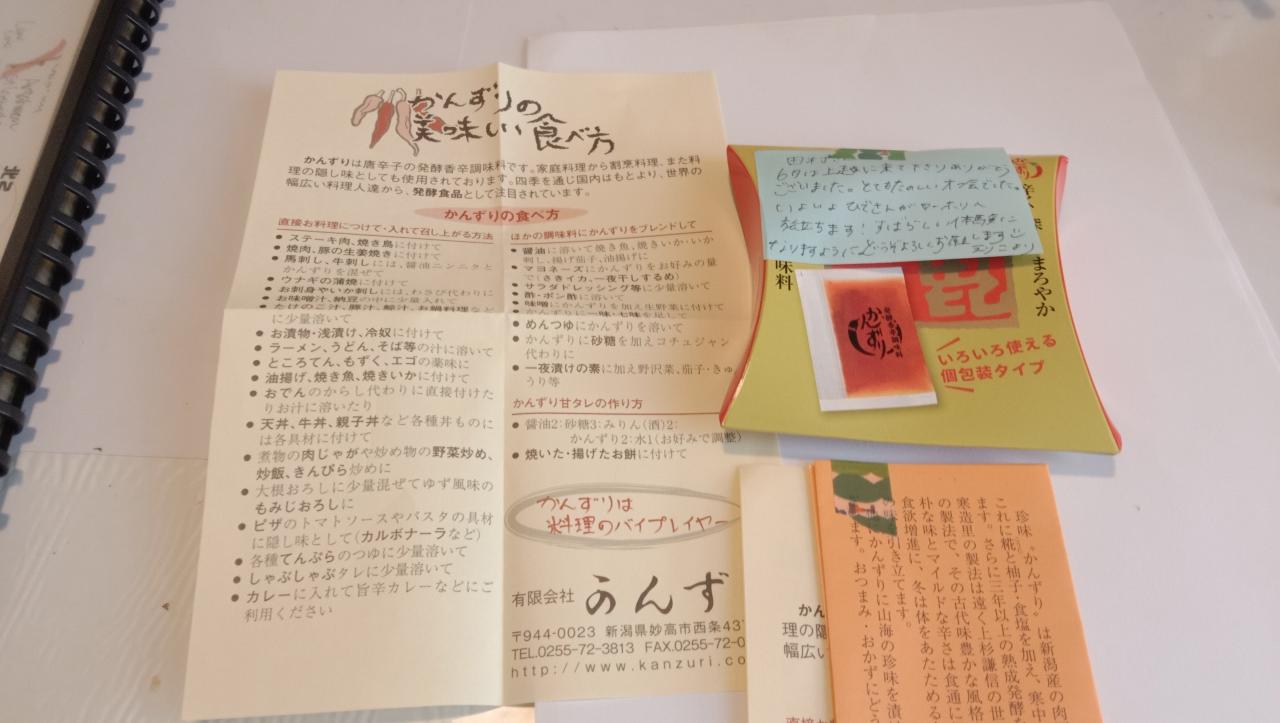 かんずりの
美味しい食べ方
かんずりは唐辛子の発酵香辛調味料です。家庭料理から割烹料理、また料
理の隠し味としても使用されております。四季を通じ国内はもとより、世界の
幅広い料理人達から、発酵食品として注目されています。
かんずりの食べ方
直接お料理につけて・入れて召し上がる方法
● ステーキ肉、焼き鳥に付けて
● 焼肉、豚の生姜焼きに付けて
● 馬刺し、牛刺しには、醤油ニンニクと
かんずりを混ぜて
● ウナギの蒲焼に付けて
● お刺身やいか刺しには、わさび代わりに
● お味噌汁、納豆の中に少量入れて
● たけのこ汁、豚汁、鯨汁、お鍋料理など
に少量溶いて
● お漬物・浅漬け、冷奴に付けて
● ラーメン、うどん、そば等の汁に溶いて
● ところてん、もずく、エゴの薬味に
● 油揚げ、焼き魚、焼きいかに付けて
● おでんのからし代わりに直接付けた
りお汁に溶いたり
● 天丼、牛丼、親子丼など各種丼ものに
は各具材に付けて
● 煮物の肉じゃがや炒め物の野菜炒め、
炒飯、きんぴら炒めに
● 大根おろしに少量混ぜてゆず風味の
もみじおろしに
● ピザのトマトソースやパスタの具材
に隠し味として(カルボナーラなど)
● 各種てんぷらのつゆに少量溶いて
● しゃぶしゃぶタレに少量溶いて
● カレーに入れて旨辛カレーなどにご
利用ください
ほかの調味料にかんずりをブレンドして
● 醤油に溶いて焼き魚、焼きいか・いか
刺し、揚げ茄子、油揚げに
● マヨネーズにかんずりをお好みの量
で(さきイカ、一夜干しするめ)
● サラダドレッシング等に少量溶いて
● 酢・ポン酢に溶いて
● 味噌にかんずりを加え生野菜に付けて
● かんずりに一味・七味を足して
● めんつゆにかんずりを溶いて
● かんずりに砂糖を加えコチュジャン
代わりに
● 一夜漬けの素に加え野沢菜、茄子・きゅ
うり等
かんずり甘タレの作り方
● 醤油2:砂糖3:みりん(酒)2:
かんずり2:水1(お好みで調整)
● 焼いた・揚げたお餅に付けて
かんずりは
料理のバイプレイヤー
有限会社 かんず
〒944-0023 新潟県妙高市西条43
TEL.0255-72-3813 FAX.0255-72-0
http://www.kanzuri.co
6日は上越に来て下さりありがとう
ございました。とてもたのしいオフ会でした。
いよいよひできんがセーボリへ
旅立ちます! すばらしい
なりますようにどうぞよろしくお願いします
より
まろやか
味料
発酵香辛調味料
かんずり
いろいろ使える
個包装タイプ
かん
理の隠
幅広い
直接お
珍味“かんずり”は新潟産の肉
これに糀と柚子・食塩を加え、寒中
ます。さらに三年以上の熟成発酵を
寒造里の製法は遠く上杉謙信の世
の製法で、その古代味豊かな風格
朴な味とマイルドな辛さは食通に
食欲増進に、冬は体をあたためる
の味を引き立てます。
かんずりに山海の珍味を漬
ます。おつまみ・おかずにどう